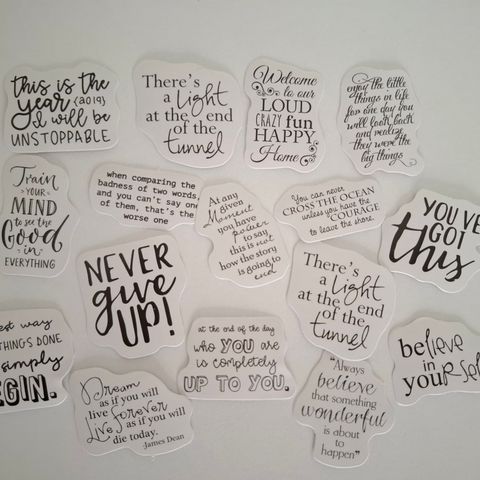 this is the
year {2019}
I will be
UNSTOPPABLE
There's
a Light
at the end
of the
tunnel
Welcome
to our
LOUD
CRAZY fun
HAPPY
Home
enjoy the little
things in life
for one day you
will look back
and realize
they were the
big things
Train
YOUR
MIND
to see the
Good
in
EVERYTHING
when comparing the
badness of two words,
and you can't say one
of them, that's the
worse one
At any
given
Moment
you have
power
to say
this is not
how the story
is going to
end
You can never
CROSS THE OCEAN
unless you have the
COURAGE
to leave the shore.
YOU'VE
GOT
this
NEVER
give
UP!
There's
a Light
at the end
of the
tunnel
est way
THINGS DONE
simply
EGIN.
Dream
as if you will
live forever
Live as if you will
die today.
-James Dean
at the end of the day
who YOU are
is completely
UP TO YOU.
"Always
believe
that something
wonderful
is about
to
happen"
believe
in
yourself